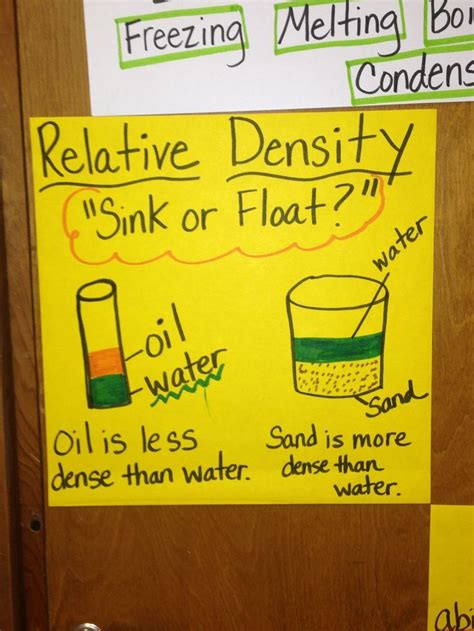 Freezing Melting
Relative Density
"Sink or Float?"
water
oil
water
Sand
Oil is less
dense than water.
Sand is more
dense than
water.